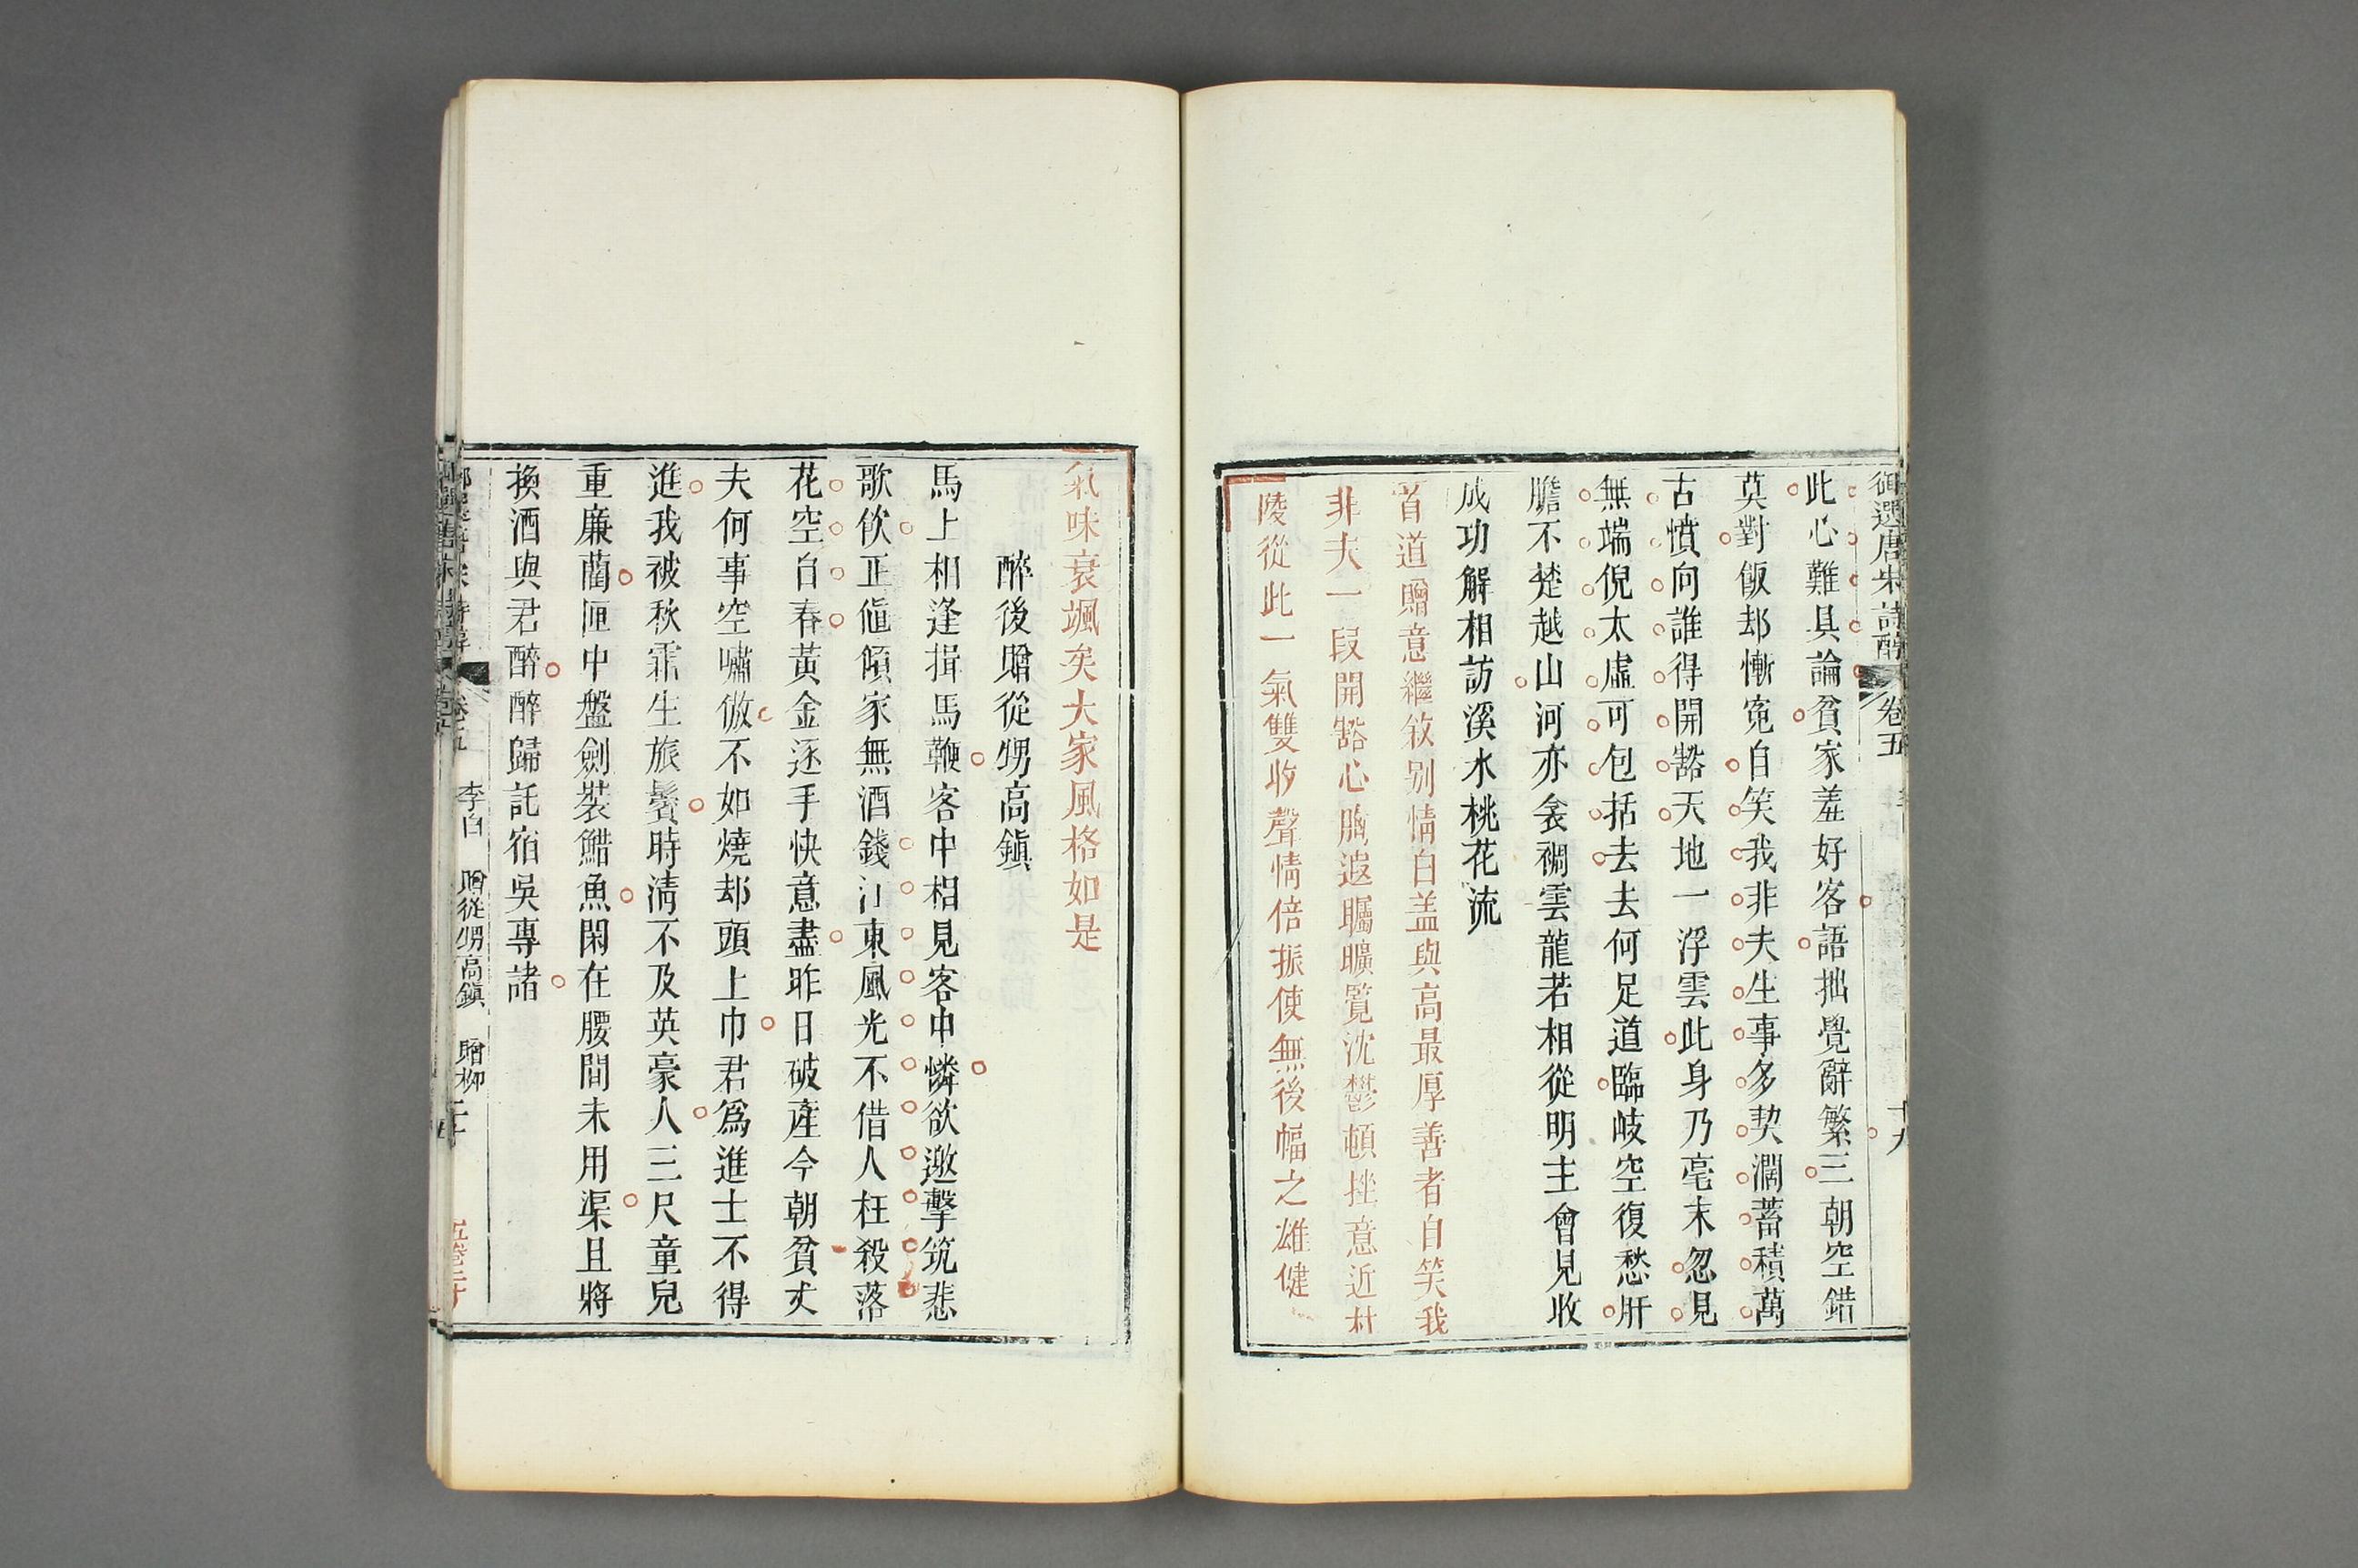 御選唐宋詩醇 卷五 十九
此心難具論貧家羞好客語拙覺辭繁三朝空錯
莫對飯却慚寃自笑我非夫生事多契濶蓄積萬
古憤向誰得開豁天地一浮雲此身乃毫末忽見
無端倪太虛可包括去去何足道臨岐空復愁肝
膽不楚越山河亦衾裯雲龍若相從明主會見收
成功解相訪溪水桃花流
首道贈意繼敘别情白盖與高最厚善者自笑我
非夫一段開豁心胸遐矚曠覽沈鬱頓挫意近杜
陵從此一氣雙收聲情倍振使無後幅之雄健
氣味衰颯矣大家風格如是
醉後贈從甥高鎮
馬上相逢揖馬鞭客中相見客中憐欲邀擊筑悲
歌飲正値傾家無酒錢江東風光不借人枉殺落
花空自春黃金逐手快意盡昨日破產今朝貧丈
夫何事空嘯傲不如燒却頭上巾君爲進士不得
進我被秋霜生旅鬢時淸不及英豪人三尺童兒
重廉藺匣中盤劍裝䱜魚閑在腰間未用渠且將
換酒與君醉醉歸託宿吳專諸
李白 贈從甥高鎮 贈柳